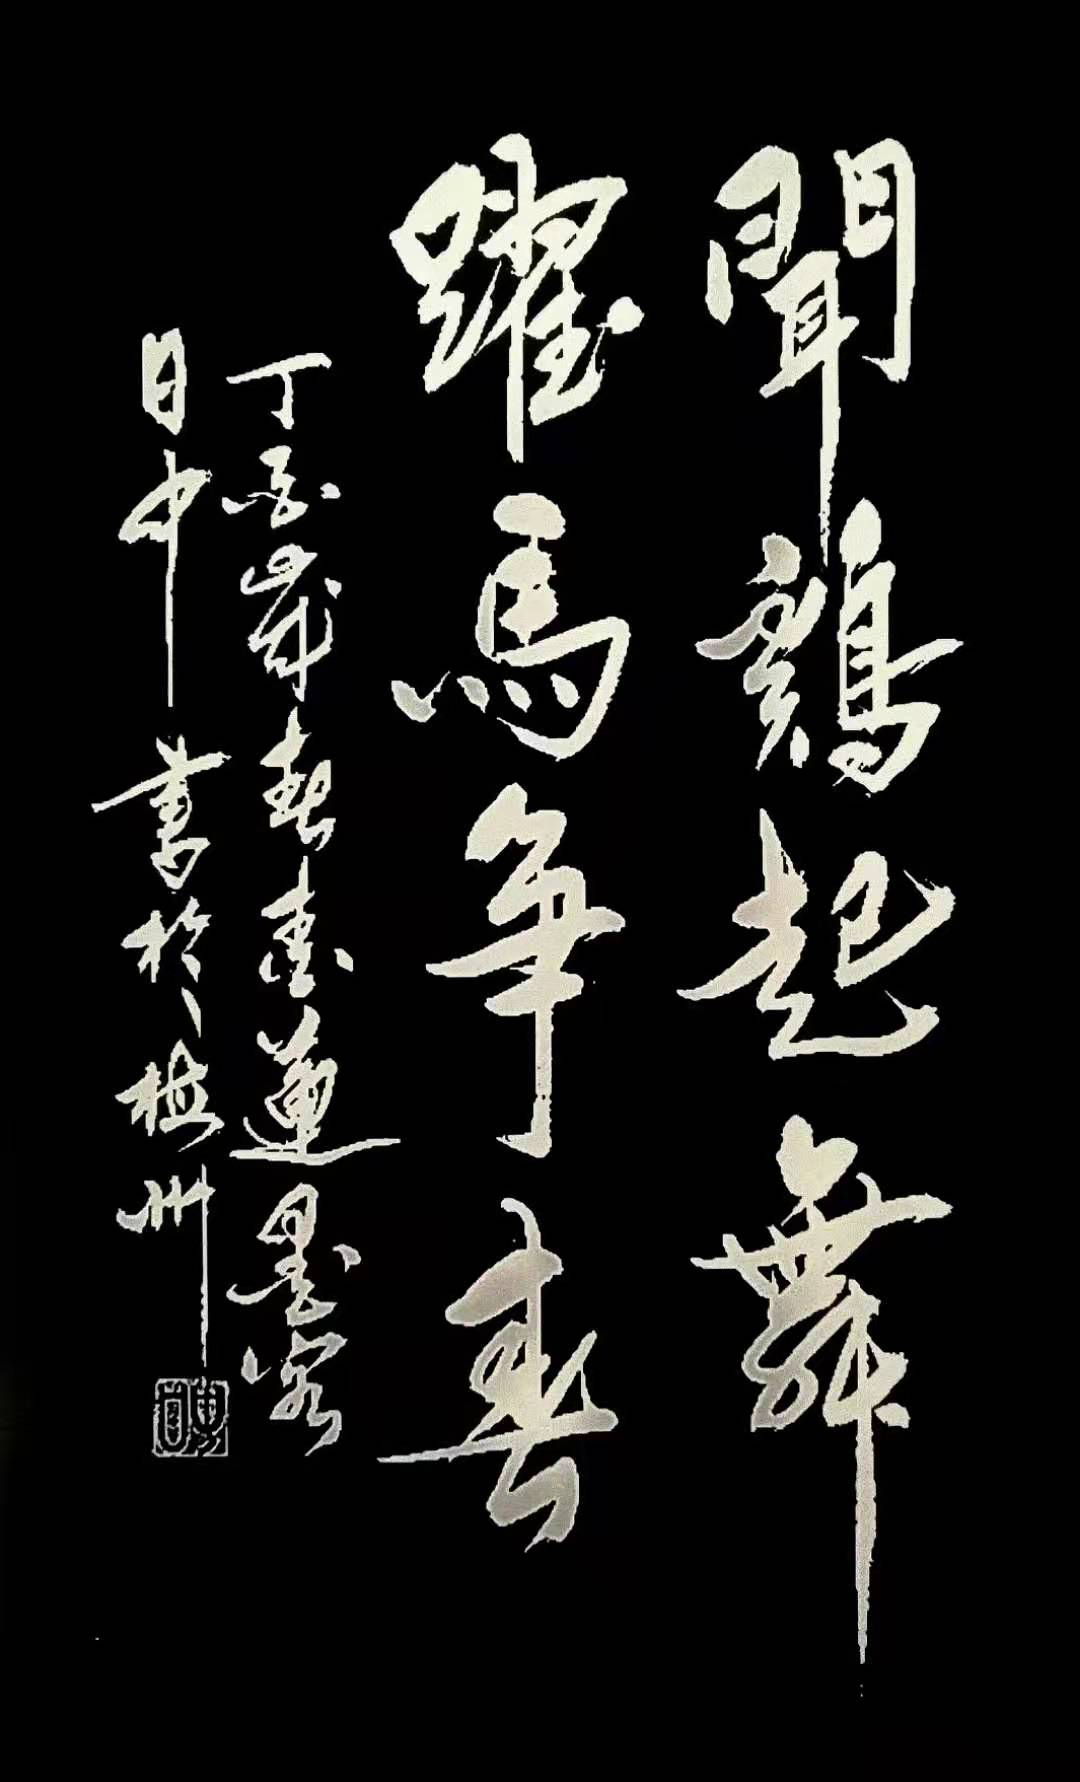 聞鷄起舞
躍馬争春
丁酉歲春 蓮墨客
日中書於梅州